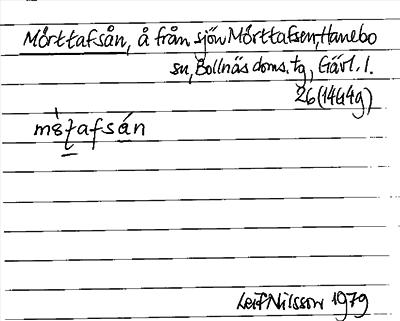 Mårttafsån, å från sjön Mårttafsen, Hanebo
sn, Bollnäs doms. tg, Gävl. l.
26(14G4g)
Leif Nilsson 1979